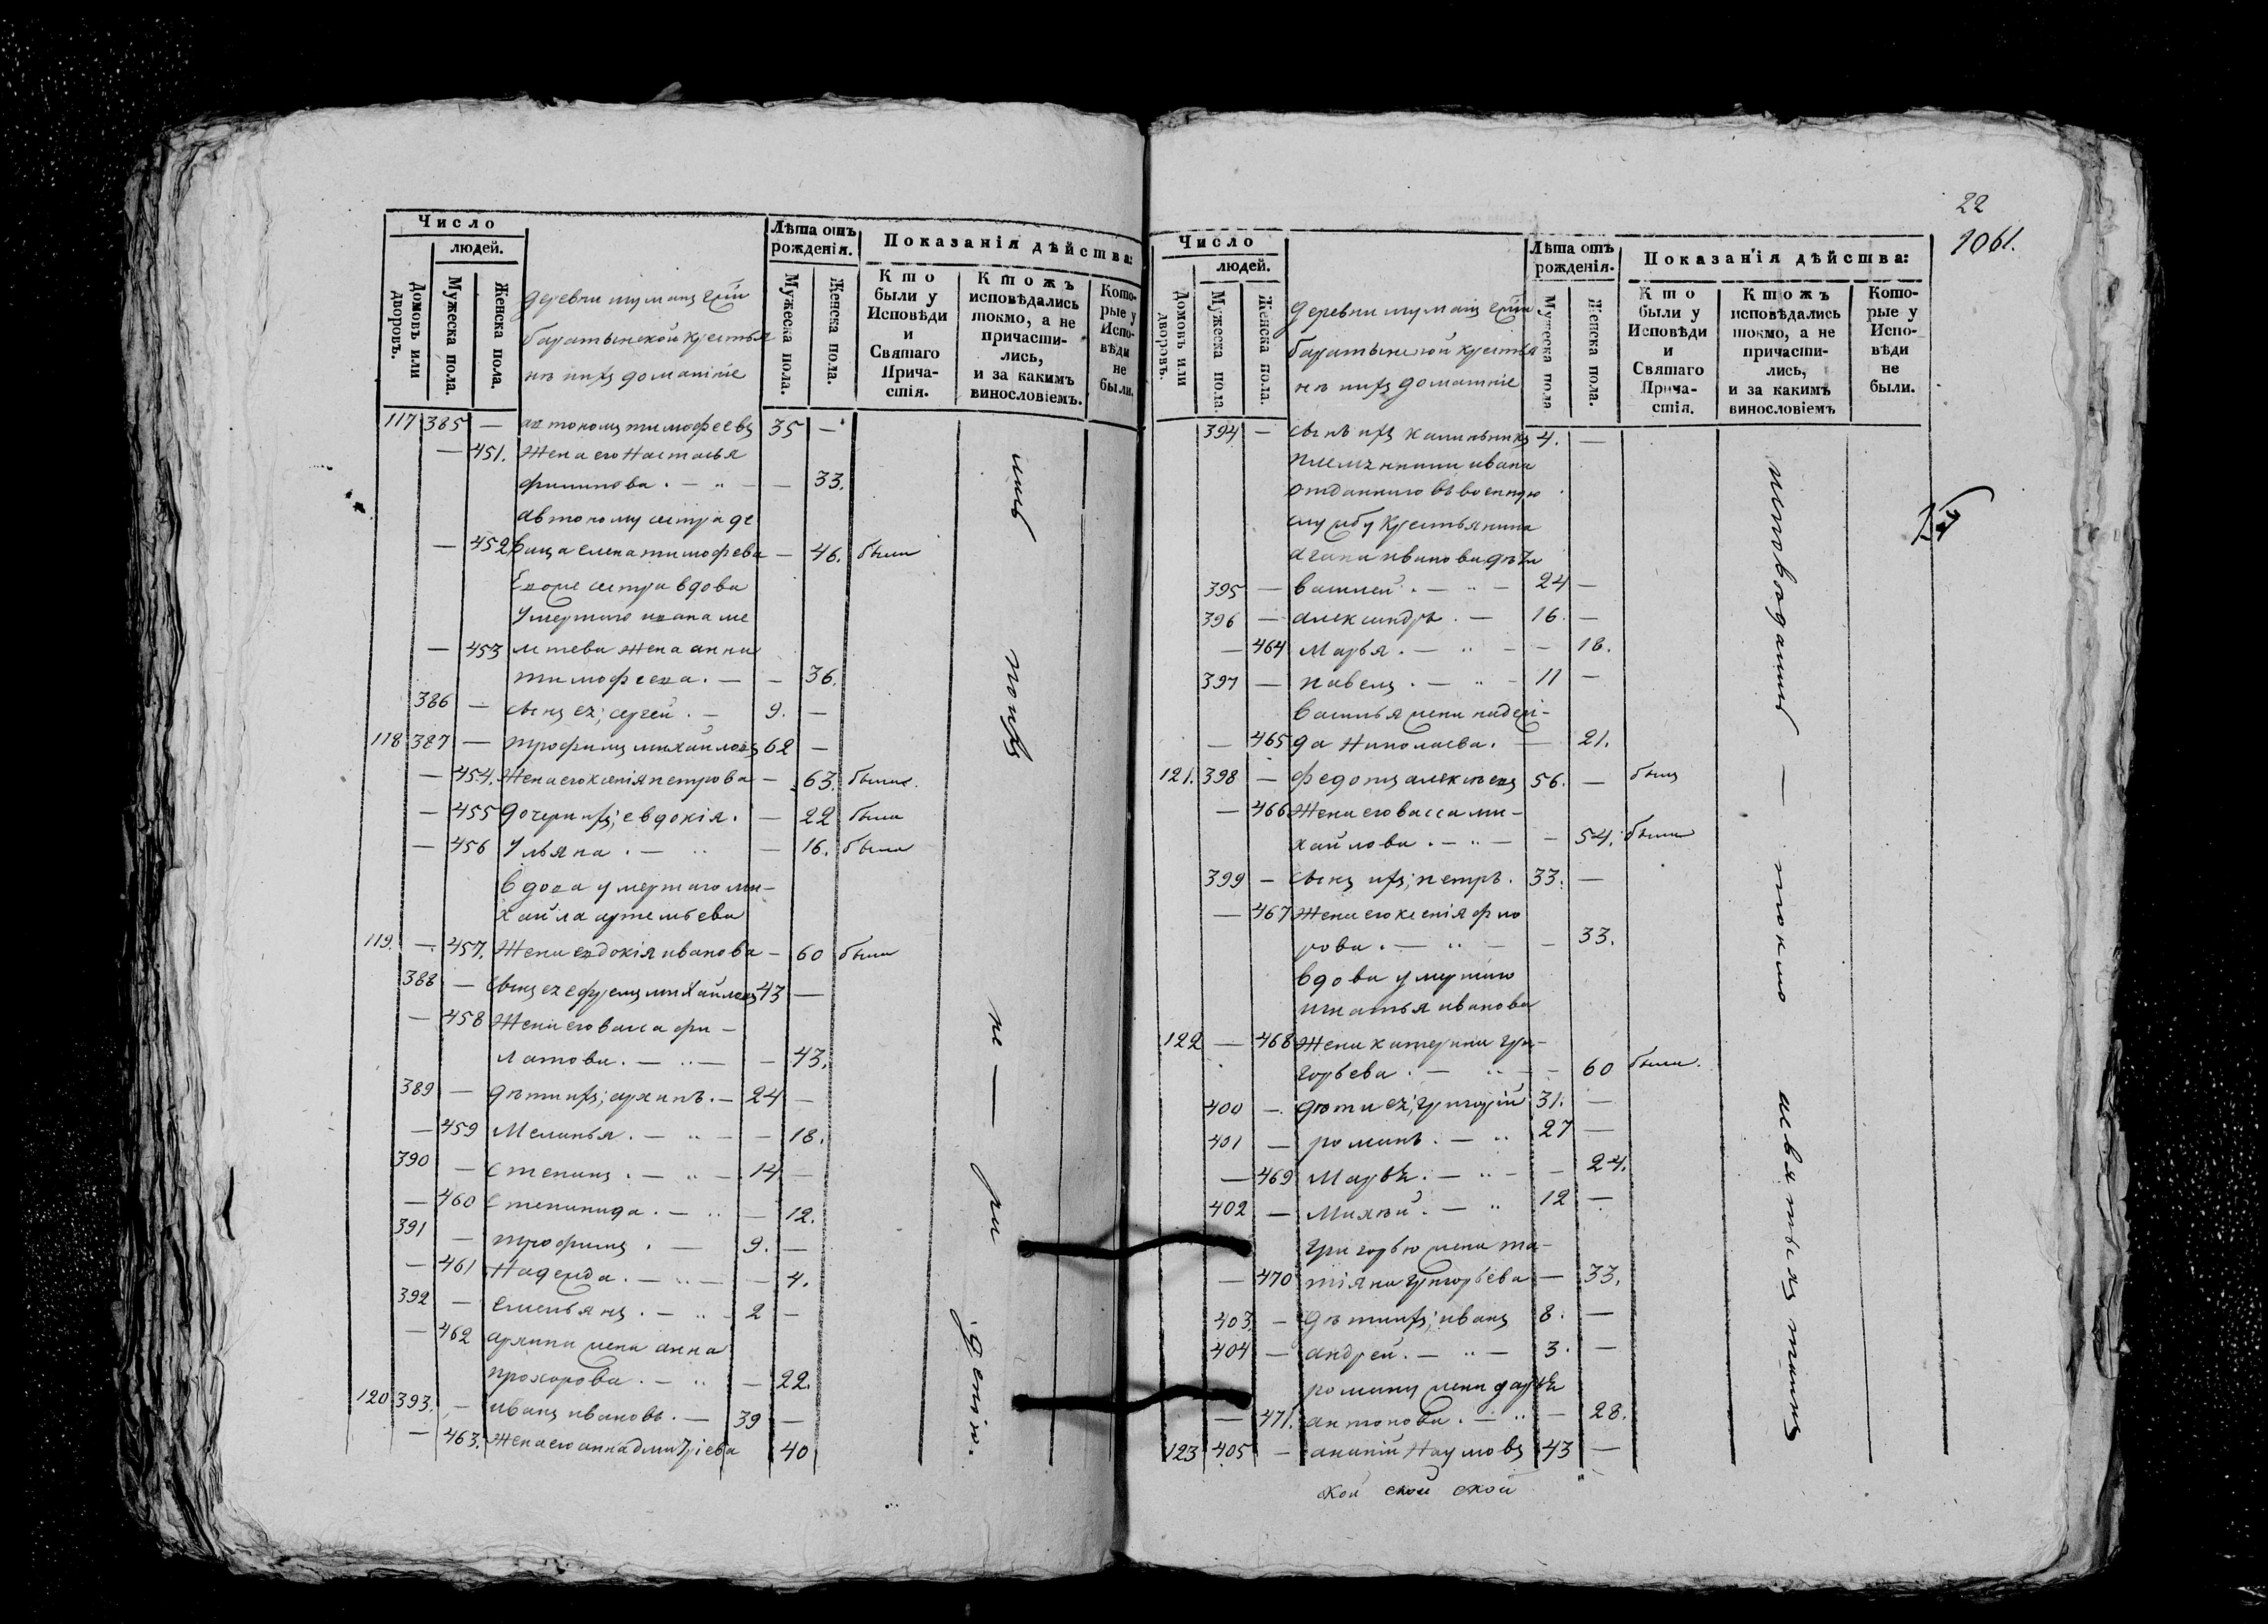 Число
людей.
Домовъ или дворовъ.
Мужеска пола.
Женска пола.
деревни
баратынской крестья
нѣ ихъ домашніе
Лѣта отъ рожденія.
Мужеска пола.
Женска пола.
Показанія дѣйства:
Кто были у Исповѣди и Святаго Прича- стія.
Ктожъ исповѣдались токмо, а не причасти- лись, и за какимъ винословіемъ.
Кото- рые у Испо- вѣди не были.
117 385 — автономъ тимофеевъ 35 —
— 451. жена его настасья
филипова. — „ — — 33.
автоному сестра де
— 452 вица елена тимофева — 46. была
ево же сестра вдова
умершаго ивана ме
— 453 жена анна
тимофеева. — — 36.
386 — сынъ ея; сергей. — 9. —
118 387 — трофимъ михайловъ 62 —
— 454. жена его ксенія петрова — 63. была.
— 455 дочери ихъ; евдокія. — 22 была
— 456 Ульяна. — „ — 16. была
вдова умершаго ми-
хайла артемьева
119. — 457. жена евдокія иванова — 60 была
388 — сынъ ея ефремъ михайловъ 43 —
— 458 жена его васса фи-
латова. — „ — — 43.
389 — дѣти ихъ; архипъ. — 24 —
— 459 Меланья. — „ — — 18.
390 — степанъ. — „ — 14 —
— 460 степанида. — „ — 12.
391 — трофимъ. — 9. —
— 461 надежда. — „ — — 4.
392 — емельянъ. — „ — 2 —
— 462 архипа жена анна
прохорова. — „ — 22.
120 393. — иванъ ивановъ. — 39 —
— 463. жена его анна дмитріева 40
лись
не — ра
денію.
22
1061.
Число
людей.
Домовъ или дворовъ.
Мужеска пола.
Женска пола.
деревни
баратынской крестья
нѣ ихъ домашніе
Лѣта отъ рожденія.
Мужеска пола
Женска пола.
Показанія дѣйства:
Кто были у Исповѣди и Святаго Прича- стія.
Ктожъ исповѣдались токмо, а не причасти- лись, и за какимъ винословіемъ
Кото- рые у Испо- вѣди не были.
394 — сынъ ихъ калинникъ 4. —
племянники ивана
отданнаго въ военную
службу крестьянина
агапа иванова дѣти
395 — василей. — „ — 24 —
396 — александръ. — 16. —
— 464 Марья. — „ — — 18.
397 — павелъ. — „ — 11 —
василья жена надеж-
— 465 да николаева. — — 21.
121. 398 — федотъ алексѣевъ 56. — былъ
— 466 жена его васса ми-
хайлова. — „ — — 54. была
399 — сынъ ихъ; петръ. 33. —
— 467 жена его ксенія фло
рова. — „ — — 33.
вдова умершаго
игнатья иванова
122 — 468 жена катерина гри-
горьева. — „ — — 60 была.
400 — дѣти ея; григорій 31. —
401 — романъ. — „ 27 —
— 469 Марья. — „ — — 24.
402 — Михѣй. — „ 12 —
григорью жена та-
— 470 тіяна григорьева — 33.
403. — дѣти ихъ; иванъ 8. —
404 — андрей. — „ — 3. —
роману жена дарья
— 471. антонова. — „ — — 28.
123 405 — ананій наумовъ 43 —
исповѣдались — токмо
ской ской ской